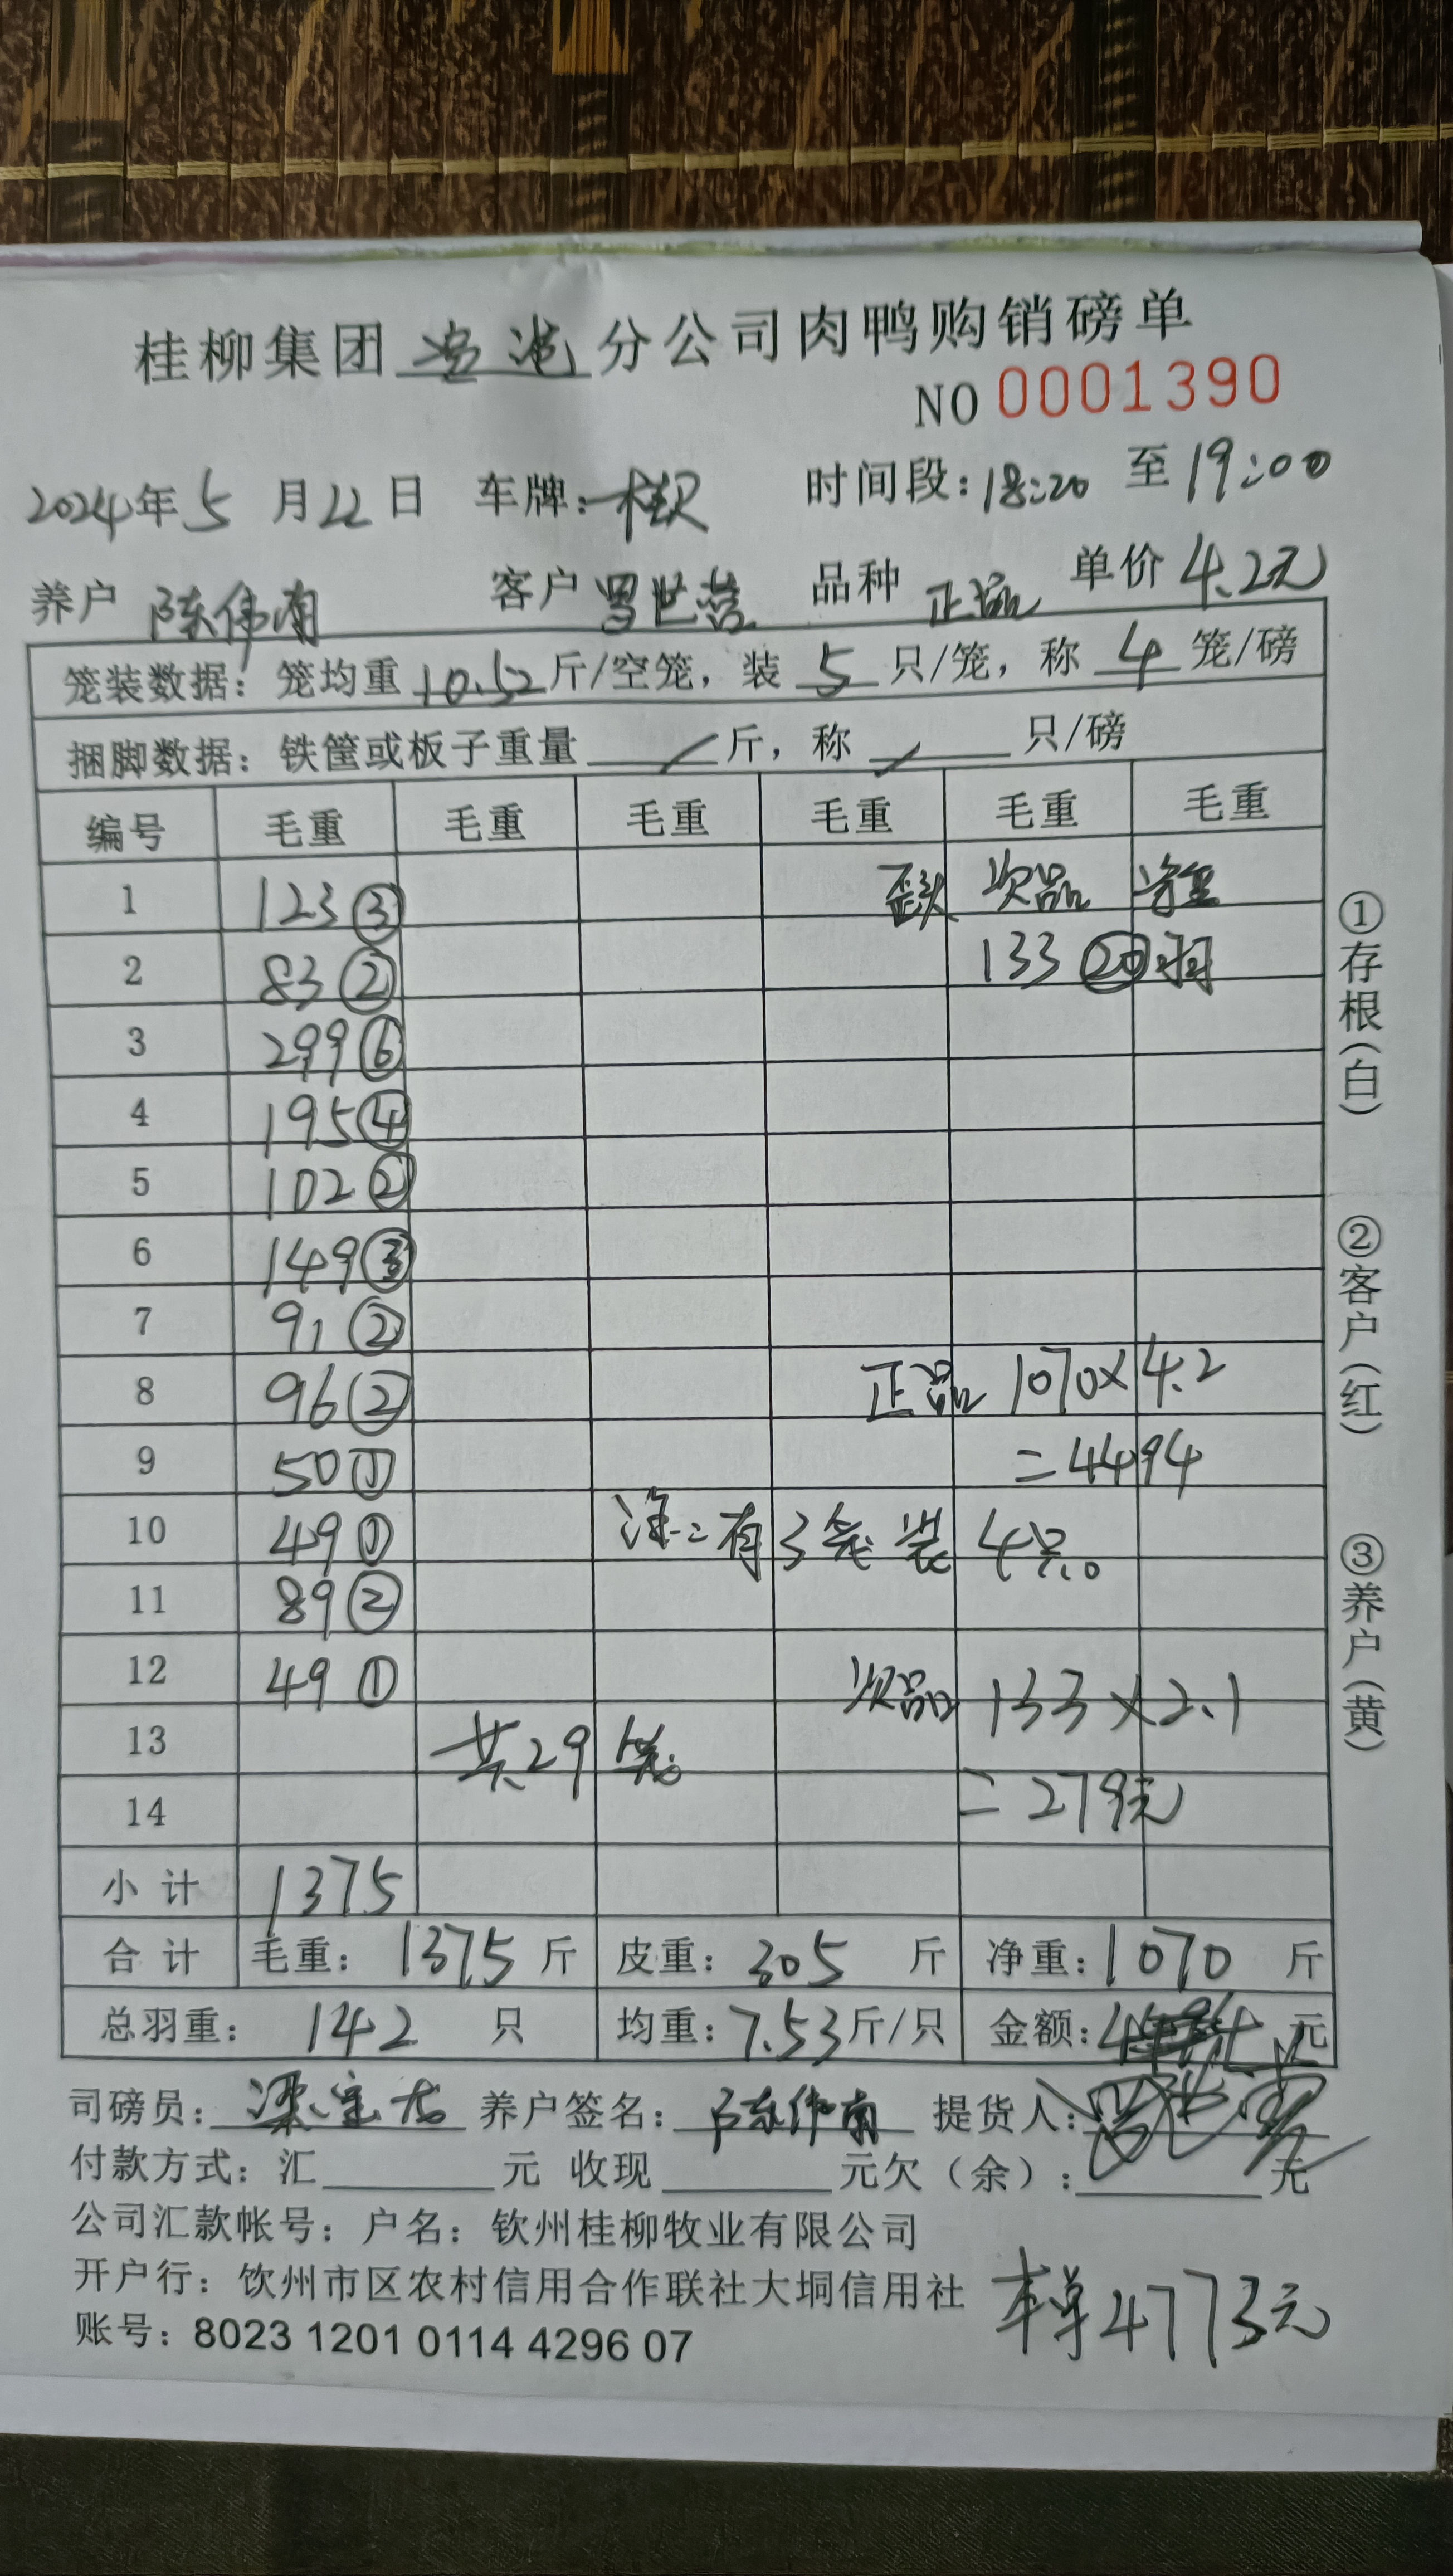 桂柳集团 分公司肉鸭购销磅单
NO 0001390
2024年5月22日 车牌: 时间段:18:20 至19:00
养户 陈伟南 客户 罗世营 品种 正品 单价 4.2元
笼装数据: 笼均重 10.52 斤/空笼, 装 5 只/笼, 称 4 笼/磅
捆脚数据: 铁筐或板子重量 / 斤, 称 / 只/磅
编号 毛重 毛重 毛重 毛重 毛重 毛重
1 123③ 歪头 次品 净重
2 83② 133 ⑳羽
3 299⑥
4 195④
5 102②
6 149③
7 91②
8 96② 正品 1070×4.2
9 50① =4494
10 49① 注:有3笼装4只。
11 89②
12 49① 次品 133×2.1
13 共29笼
14 =279元
小计 1375
合计 毛重: 1375 斤 皮重: 305 斤 净重: 1070 斤
总羽重: 142 只 均重: 7.53斤/只 金额: 元
司磅员: 养户签名: 陈伟南 提货人:
付款方式: 汇 元 收现 元欠(余): 元
公司汇款帐号: 户名: 钦州桂柳牧业有限公司
开户行: 饮州市区农村信用合作联社大垌信用社
账号: 8023 1201 0114 4296 07
本单4773元
①存根(白) ②客户(红) ③养户(黄)